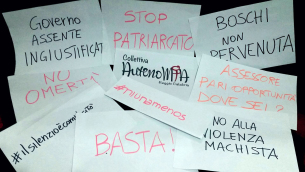 GOVERNO
ASSENTE
INGIUSTIFICAT
STOP
PATRIARCATO
BOSCHI
NON
PERVENUTA
NO
OMERTÀ
Collettiva
AutonoMIA
#niunamenos
ASSESSORE
PARI OPPORTUNITÀ
DOVE SEI?
#ilsilenzioècomplicità
BASTA!
NO ALLA
VIOLENZA
MACHISTA